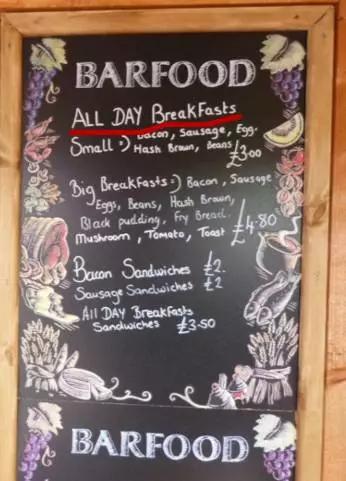 BARFOOD
ALL DAY BreakFasts
Small :) Bacon, Sausage, Egg.
Hash Brown, Beans £3.00
Big Breakfasts :) Bacon, Sausage
Eggs, Beans, Hash Brown,
Black pudding, Fry Bread.
Mushroom, Tomato, Toast £4.80
Bacon Sandwiches £2.
Sausage Sandwiches £2
All DAY Breakfasts
Sandwiches £3.50
BARFOOD